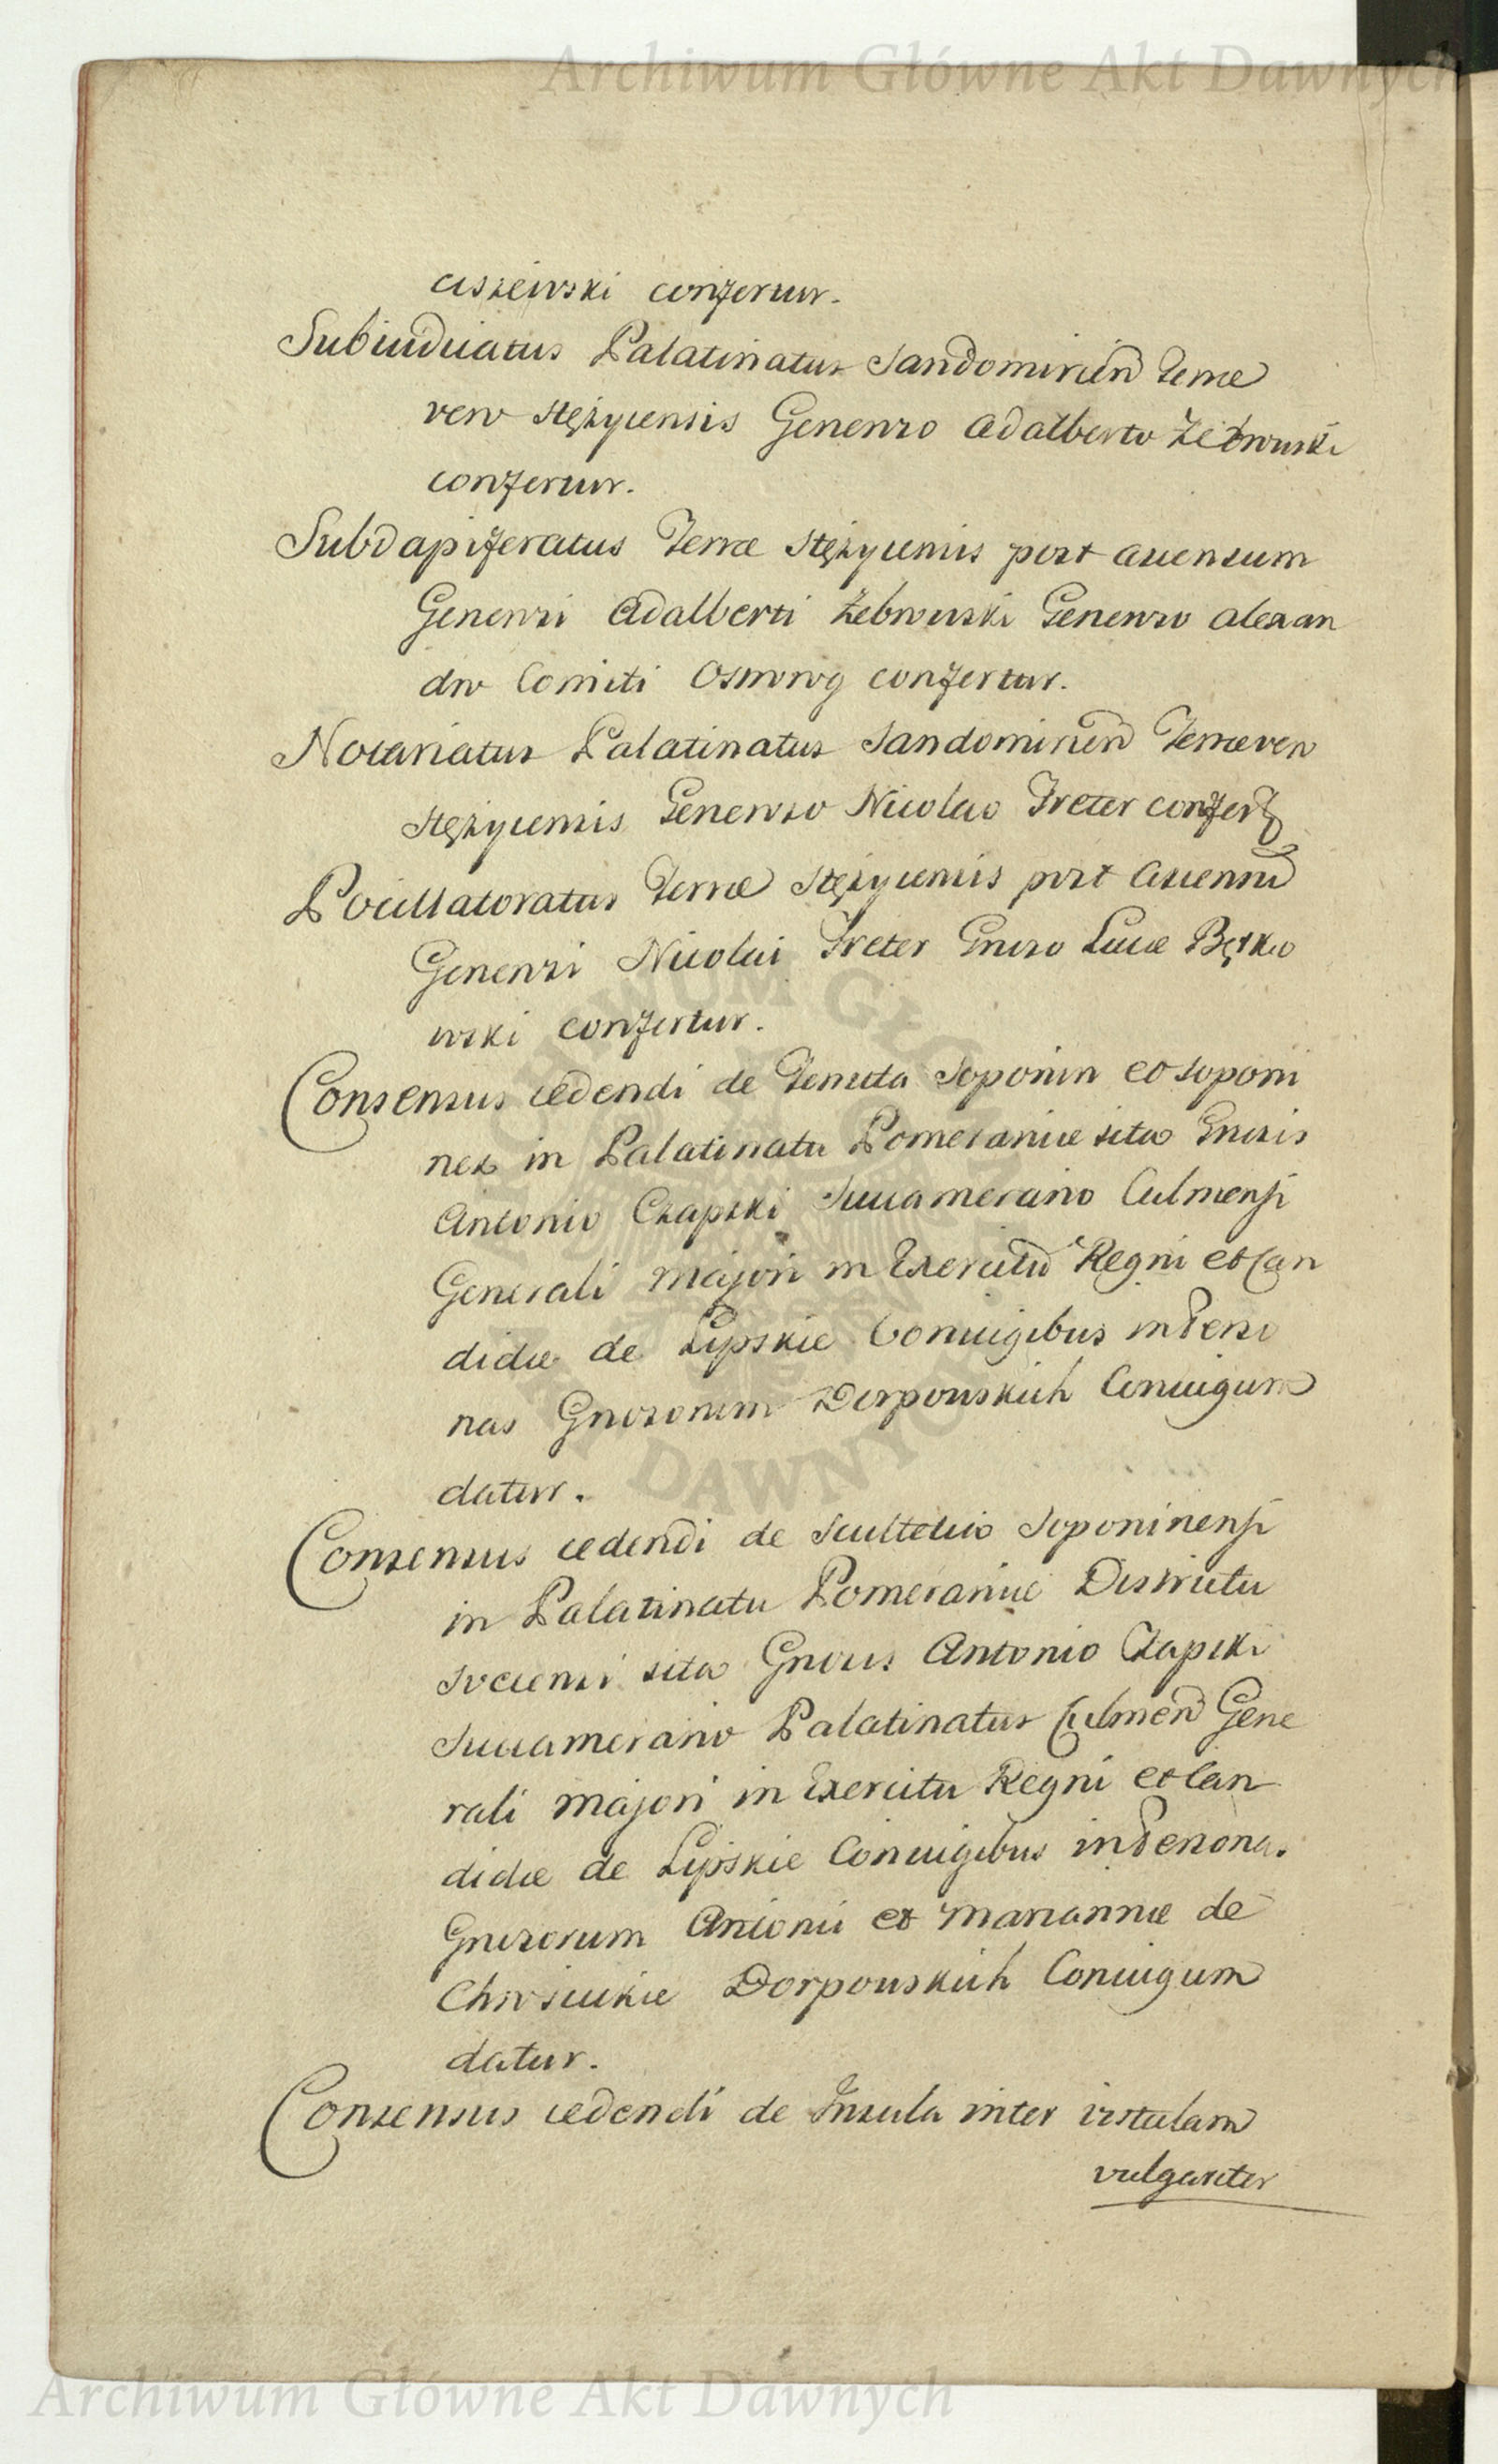 Archiwum Główne Akt Dawnych
ciszewski confertur.
Subiudicatus Palatinatus Sandomirien Terræ
vero Stężycensis Generoso Adalberto Żebrowski
confertur.
Subdapiferatus Terræ Stężycensis post ascensum
Generosi Adalberti Żebrowski Generoso Alexan
dro Comiti Ossorog confertur.
Notariatus Palatinatus Sandomirien Terræ vero
Stężycensis Generoso Nicolao Treter confert
Pocillatoratus Terræ Stężycensis post Ascensu
Generosi Nicolai Treter Gnroso Lucæ Bętko
wski confertur.
Consensus cedendi de Tenuta Soponin et Soponi
nek in Palatinatu Pomeraniæ sita Gnrsis
Antonio Czapski Succamerario Culmensi
Generali Majori in Exercitu Regni et Can
didæ de Lipskie Coniugibus in Perso
nas Gnrosorum Dorpowskich Coniugum
datur.
Consensus cedendi de Scultetia Soponinensi
in Palatinatu Pomeraniæ Districtu
Svecensi sita Gnrsis Antonio Czapski
Succamerario Palatinatus Culmen Gene
rali Majori in Exercitu Regni et Can
didæ de Lipskie Coniugibus in Personas
Gnrsorum Antonii et Mariannæ de
Dorpowskich Coniugum
datur.
Consensus cedendi de Insula inter Vistulam
vulgariter
Archiwum Główne Akt Dawnych